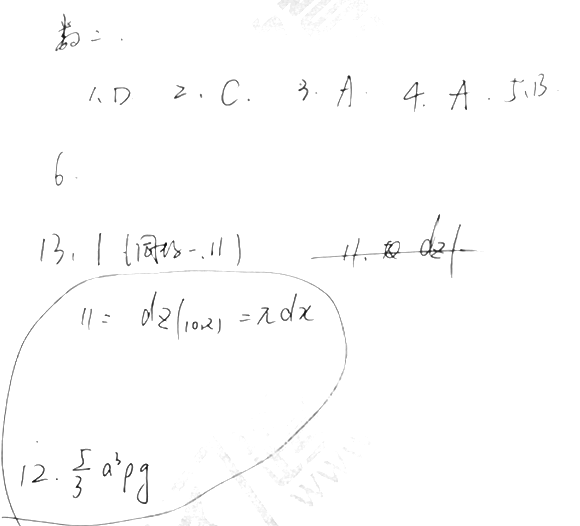 数二.
1.D 2.C. 3.A. 4.A. 5.B
6.
13. 1 (同数一.11)
11. dz|
11= dz|(0,2) = πdx
12. 5/3 a³ρg
www